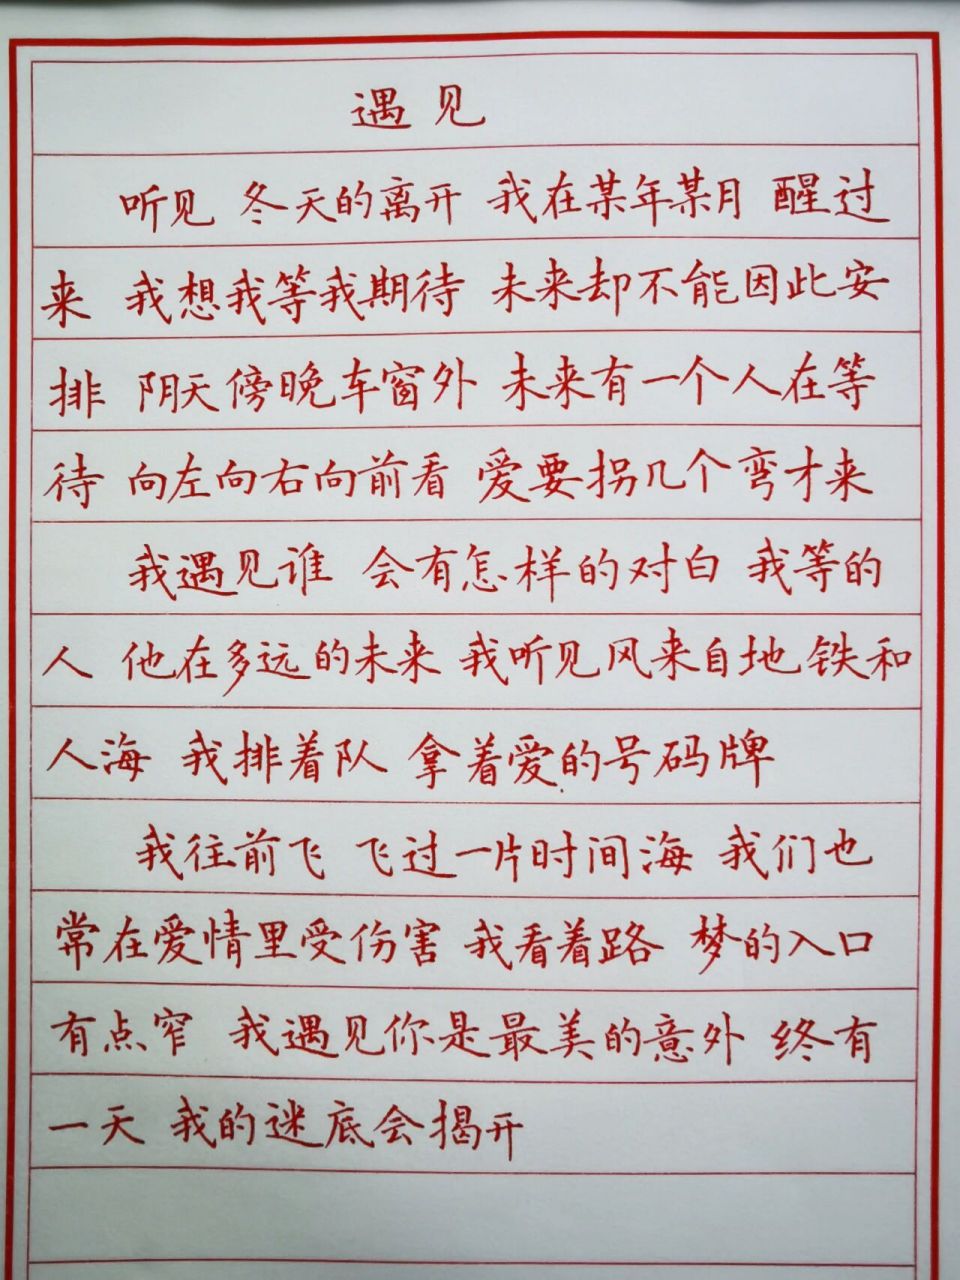 遇见
听见 冬天的离开 我在某年某月 醒过
来 我想我等我期待 未来却不能因此安
排 阴天傍晚车窗外 未来有一个人在等
待 向左向右向前看 爱要拐几个弯才来
我遇见谁 会有怎样的对白 我等的
人 他在多远的未来 我听见风来自地铁和
人海 我排着队 拿着爱的号码牌
我往前飞 飞过一片时间海 我们也
常在爱情里受伤害 我看着路 梦的入口
有点窄 我遇见你是最美的意外 终有
一天 我的谜底会揭开